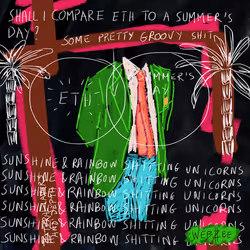 SHALL I COMPARE ETH TO A SUMMER'S
DAY?
SOME PRETTY GROOVY SHIT
ETH
SUMMER'S
DAY
SUNSHINE & RAINBOW SHITTING UNICORNS
SUNSHINE & RAINBOW SHITTING UNICORNS
SUNSHINE & RAINBOW SHITTING UNICORNS
SUNSHINE & RAINBOW SHITTING UNICORNS
SUNSHINE & RAINBOW SHITTING UNICORNS
SUNSHINE & RAINBOW SHITTING